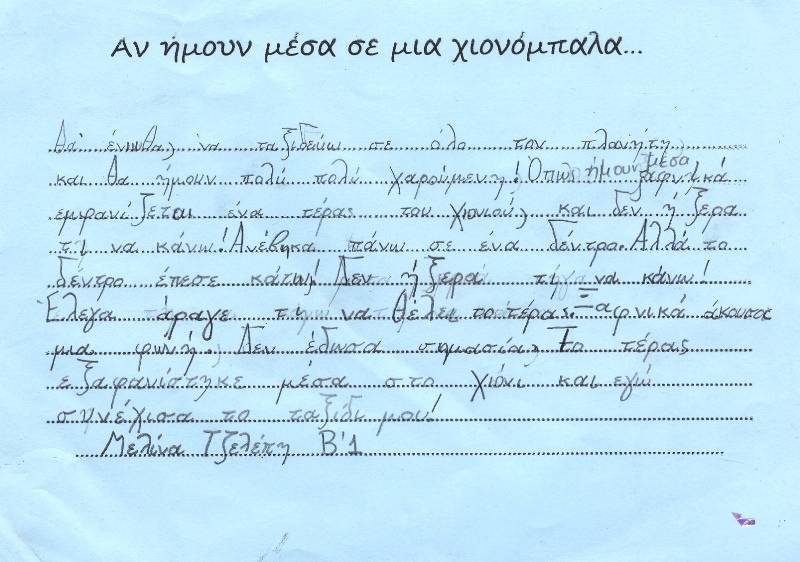 Αν ήμουν μέσα σε μια χιονόμπαλα...
Θα ένιωθα, να ταξιδεύω σε όλο τον πλανήτη
και θα ήμουν πολύ πολύ χαρούμενη! Όπως ήμουν μέσα ξαφνικά
εμφανίζεται ένα τέρας του χιονιού, και δεν ήξερα
τη να κάνω! Ανέβηκα πάνω σε ένα δέντρο. Αλλά το
δέντρο έπεσε κάτω! Δεν ήξερα τη να κάνω!
Έλεγα άραγε τη να θέλει το τέρας. Ξαφνικά άκουσα
μια φωνή. Δεν έδωσα σημασία, Το τέρας
εξαφανίστηκε μέσα στο χιόνι και εγώ
συνέχισα το ταξίδι μου!
Μελίνα Τζελέπη Β'1